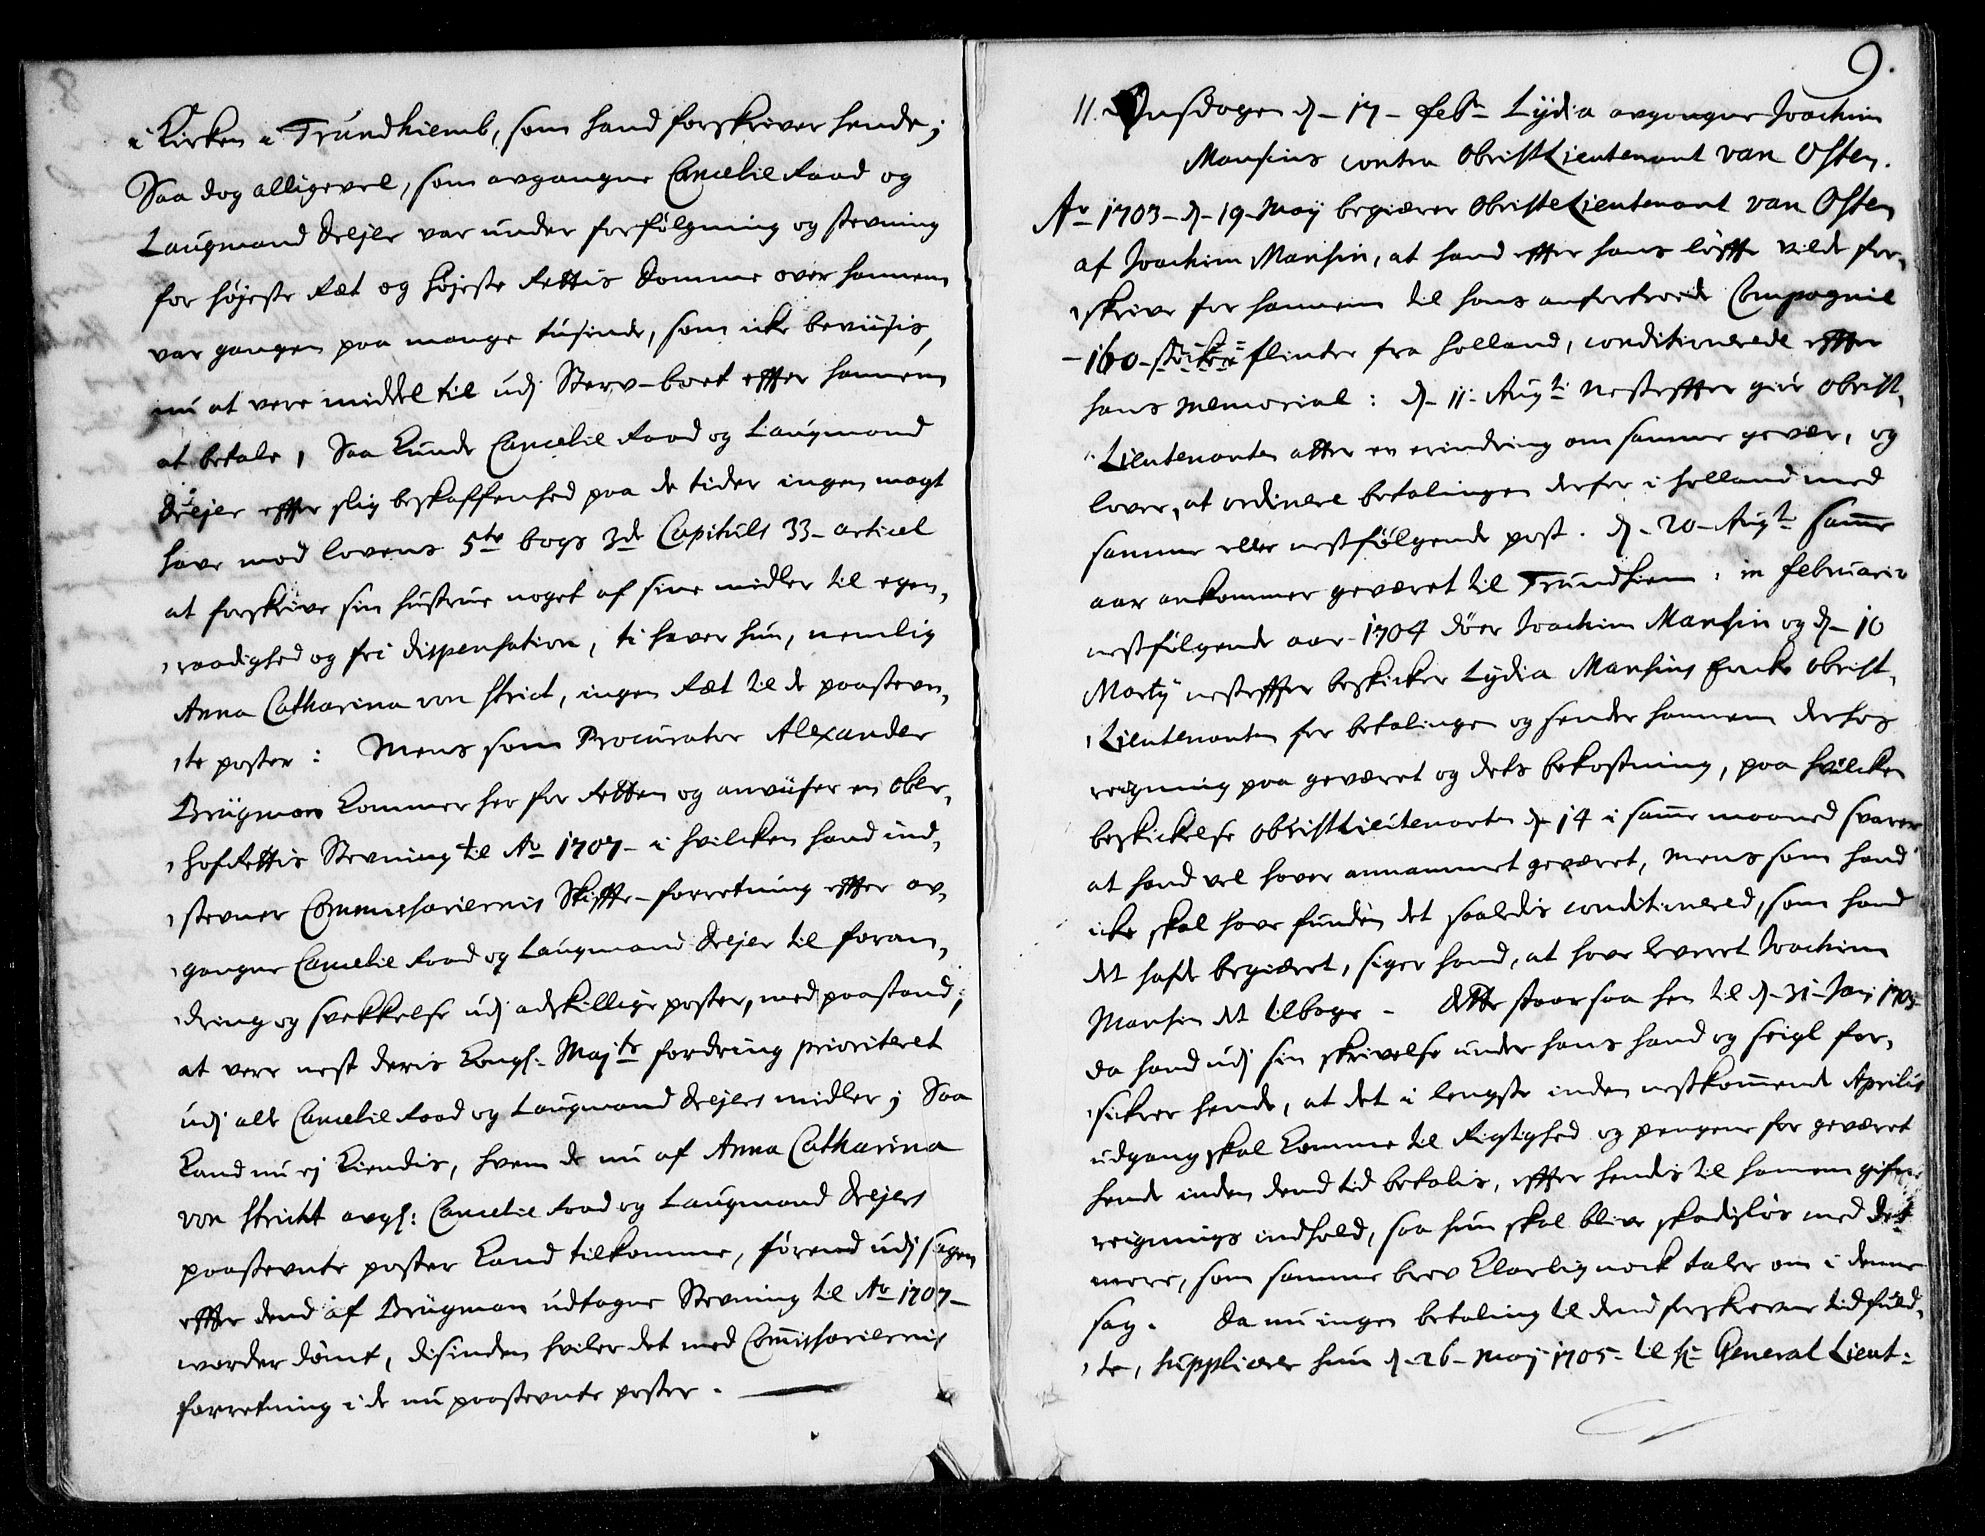 i Kirken i Trundhiemb, som hand forskriver hende;
Saa dog alligevel, som avgangne Cancelie Raad og
Laugmand Drejer var under forfølgning og stevning
for højeste Ræt og højeste Rettis Domme over hannem
var gangen paa mange tusinde, som icke beviisis,
nu at vere middel til udj Sterv-boet effter hannem
at betale, Saa kunde Cancelie Raad og Laugmand
Drejer effter slig beskaffenhed paa de tider ingen magt
have mod lovens 5te bogs 3de Capituls 33 articel
at forskrive sin hustrue noget af sine midler til egen,
,raadighed og fri dispensation, ti haver hun, nemlig
Anna Catharina von Stricht, ingen Ræt til de paastevn,
,te poster: Mens som Procurator Alexander
Brügman kommer her for Retten og anviiser en Ober,
,hofRettis Stevning til Ao 1707 - i hvilcken hand ind,
,stevner Commissariernis Skiffte-forretning effter av,
,gangne Cancelie Raad og Laugmand Drejer til foran,
,dring og svekkelse udj adskillige poster, med paastand;
at vere nest deris Kongl: Majts fordring prioriteret
udj alle Cancelie Raad og Laugmand Drejers midler; Saa
kand nu ej kiendis, hvem de nu af Anna Catharina
von Stricht avgl: Cancelie Raad og Laugmand Drejers
paastevnte poster kand tilkomme, førend udj sagen
effter dend af Brügman udtagne Stevning til Ao 1707 -
worder dømt, disinden hviler det med Commissariernis
forretning i de nu paastevnte poster.
9.
11. Onsdagen d. 17 - Febr Lydia avgangne Joachim
Mansins contra ObristLieutenant van Osten.
Ao 1703 - d. 19 - Maij begiærer ObristeLieutenant van Osten
af Joachim Mansin, at hand effter hans løffte vilde for,
,skrive for hannem til hans anfortroede Compagnie
- 160 - stücker flinter fra Holland, conditionerede effter
hans Memorial: d. 11. Augti nesteffter giør Obrist,
,Lieutenanten atter en erindring om samme gevær, og
lover, at ordinere betalingen derfor i Holland med
samme eller nestfølgende post. d. 20 - Augti samme
aar ankommer geværet til Trundhiem: in Februario
nestfølgende aar 1704 døer Joachim Mansin og d. 10
Marty nesteffter beskicker Lydia Mansins Encke Obrist,
,Lieutenanten for betalingen og sender hannem derhos
reigning paa geværet og dets bekostning, paa hvilcken
beskickelse ObristLieutenanten d. 14 i samme maaned svarer
at hand vel haver annammet geværet, mens som hand
icke skal have funden det saaledis conditionered, som hand
det hafde begiæret, siger hand, at have leveret Joachim
Mansin det tilbage - dette staar saa hen til d. 31 - Janj 1705
da hand udj sin skrivelse under hans hand og seigl for,
,sickrer hende, at det i lengste inden nestkommende Aprilis
udgang skal komme til Rigtighed og pengene for geværet
hende inden dend tid betalis, effter hendes til hannem gifne
reignings indhold, saa hun skal blive skadisløs med det
mere, som samme brev klarlig nock taler om i denne
sag. Da nu ingen betaling til dend forskrevne tid fuld,
,te, supplicerer hun d. 26 - Maj 1705 - til Hr General Lieut: